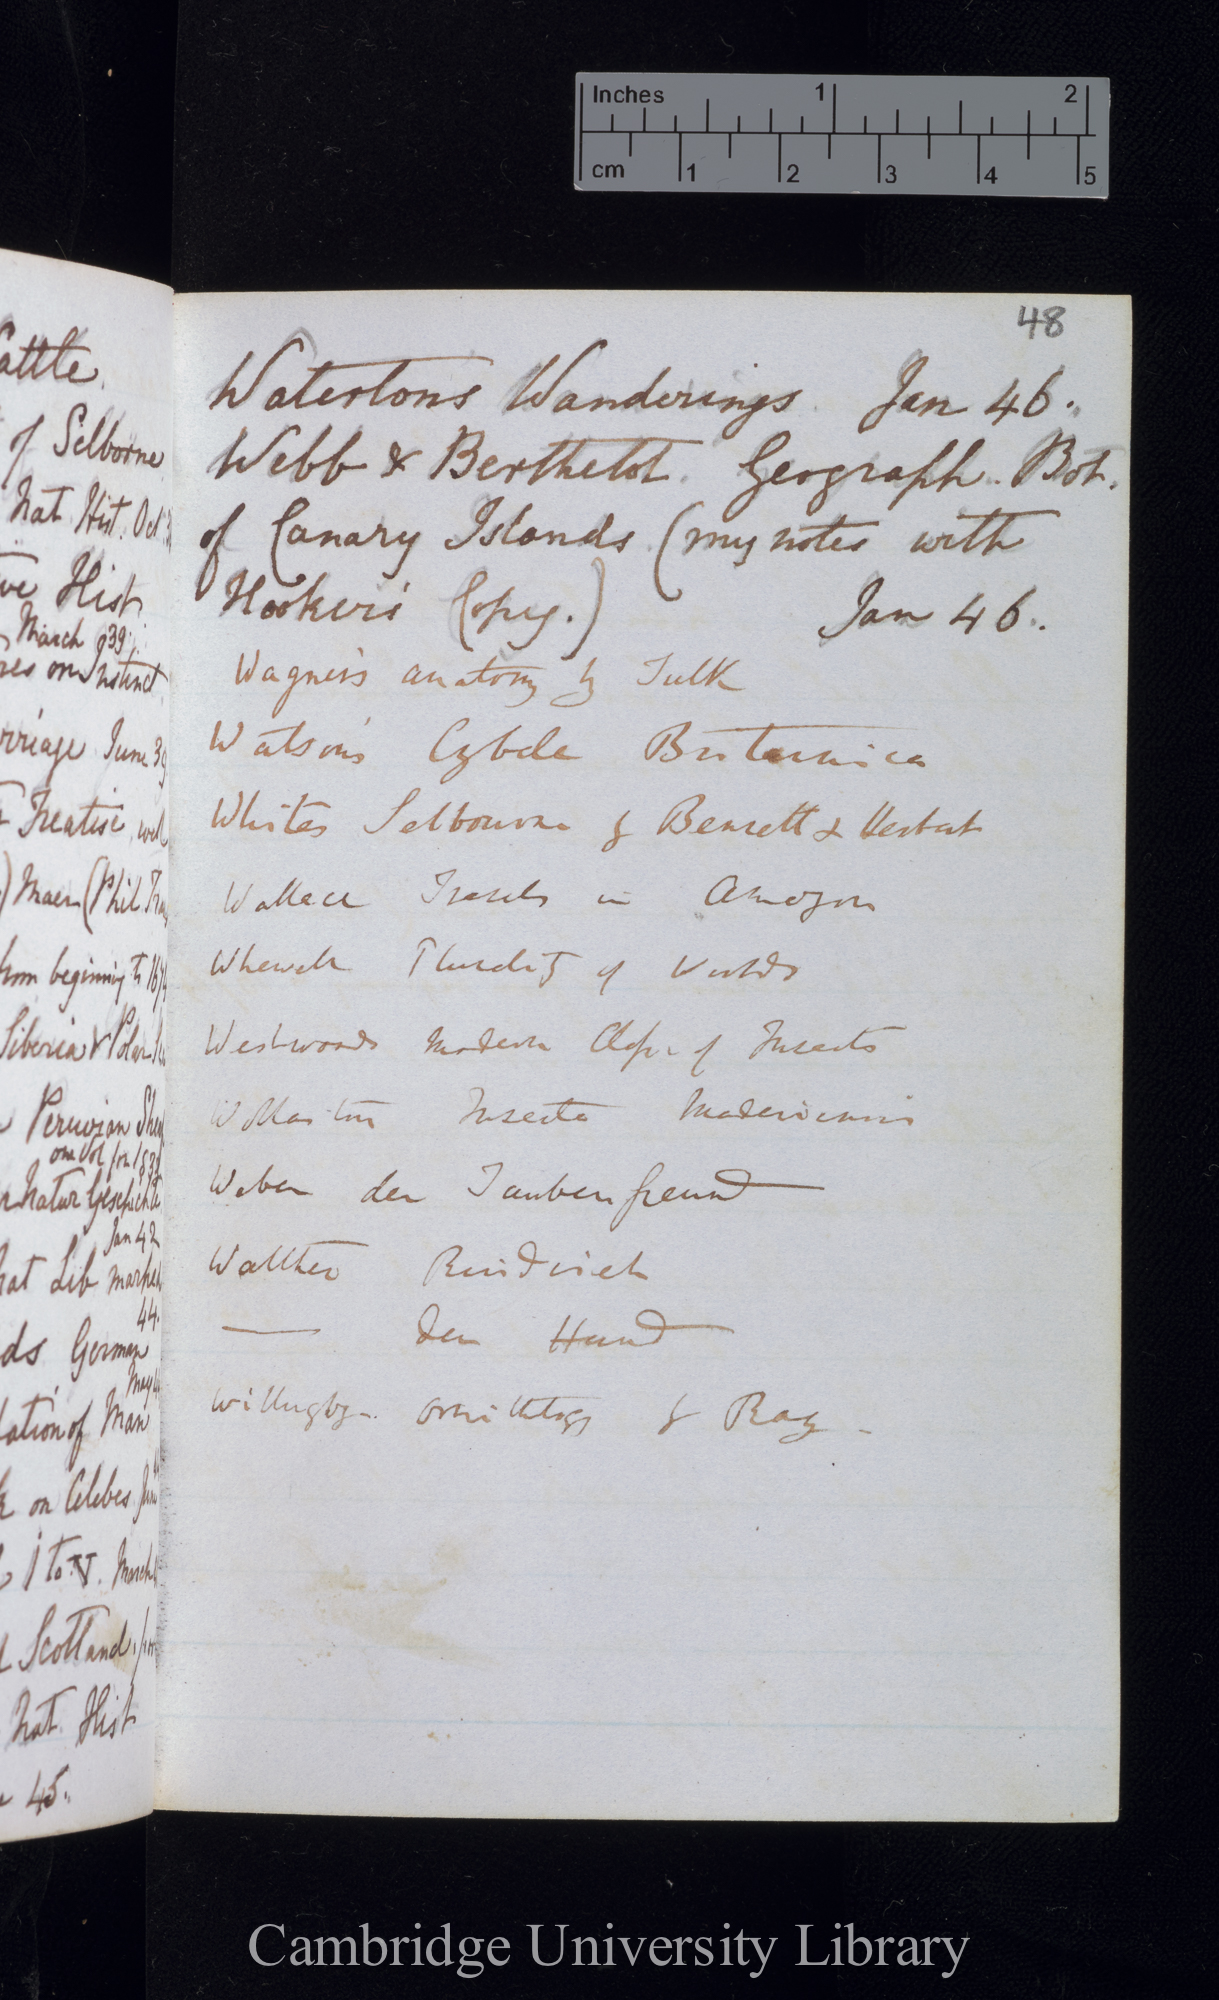 Inches 1 2
cm 1 2 3 4 5
48
Watertons Wanderings. Jan 46.
Webb & Berthelot. Geograph. Bot.
of Canary Islands (my notes with
Hooker's Copy.) Jan 46.
Wagner's anatomy by Tulk
Watson's Cybele Britannica
Whites Selbourne by Bennett & Herbert
Wallace Travels in Amazon
Whewell Plurality of Worlds
Westwoods Modern Class. of Insects
Wollaston Insecta Maderiensis
Weber der Taubenfreund
Walther Rindvieh
— der Hund
Willugby. Ornithology by Ray.
attle.
of Selborne
Nat. Hist. Oct.
Hist
March 39
on Instinct
rriage June 39
Treatise
) Maer (Phil. Tra
from beginning to
Siberia & Polar
Peruvian
one Vol for 183
Natur Geschichte
Jan 42
Lib marked
44.
ds German
May
ation of Man
on Celebes
1 to V. March
Scotland.
Nat. Hist
45.
Cambridge University Library